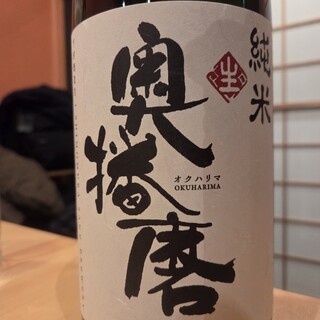 純米
生
奥播磨
オクハリマ
OKUHARIMA